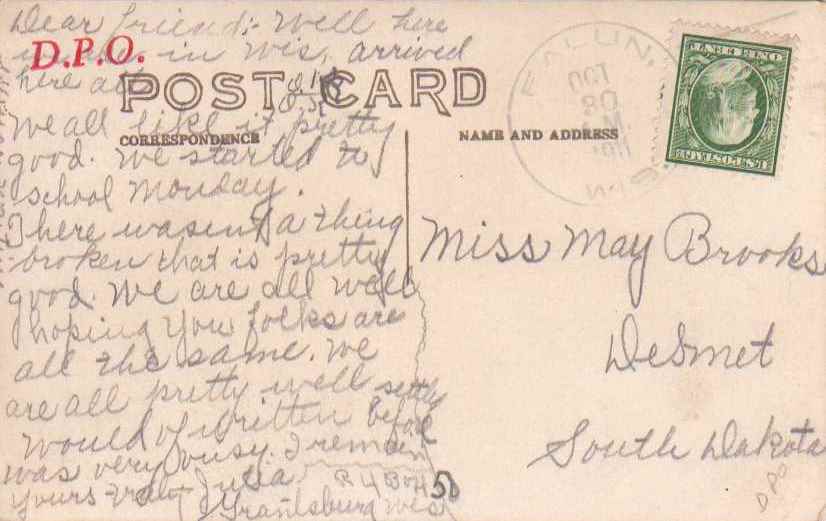 Dear Friend:- Well here
in Wis, arrived
here
D.P.O.
POST CARD
CORRESPONDENCE
NAME AND ADDRESS
We all like it pretty
good. We started to
school Monday.
There wasent a thing
broken that is pretty
good. We are all well
hoping you folks are
all the same. We
are all pretty well settly
would of written before
was very busy. I remain
yours truly Julia
R 4 Box 50
Grantsburg Wis
FALUN,
OCT
30
M
1911
WIS.
U.S.POSTAGE
ONE CENT
Miss May Brooks
DeSmet
South Dakota
DPO